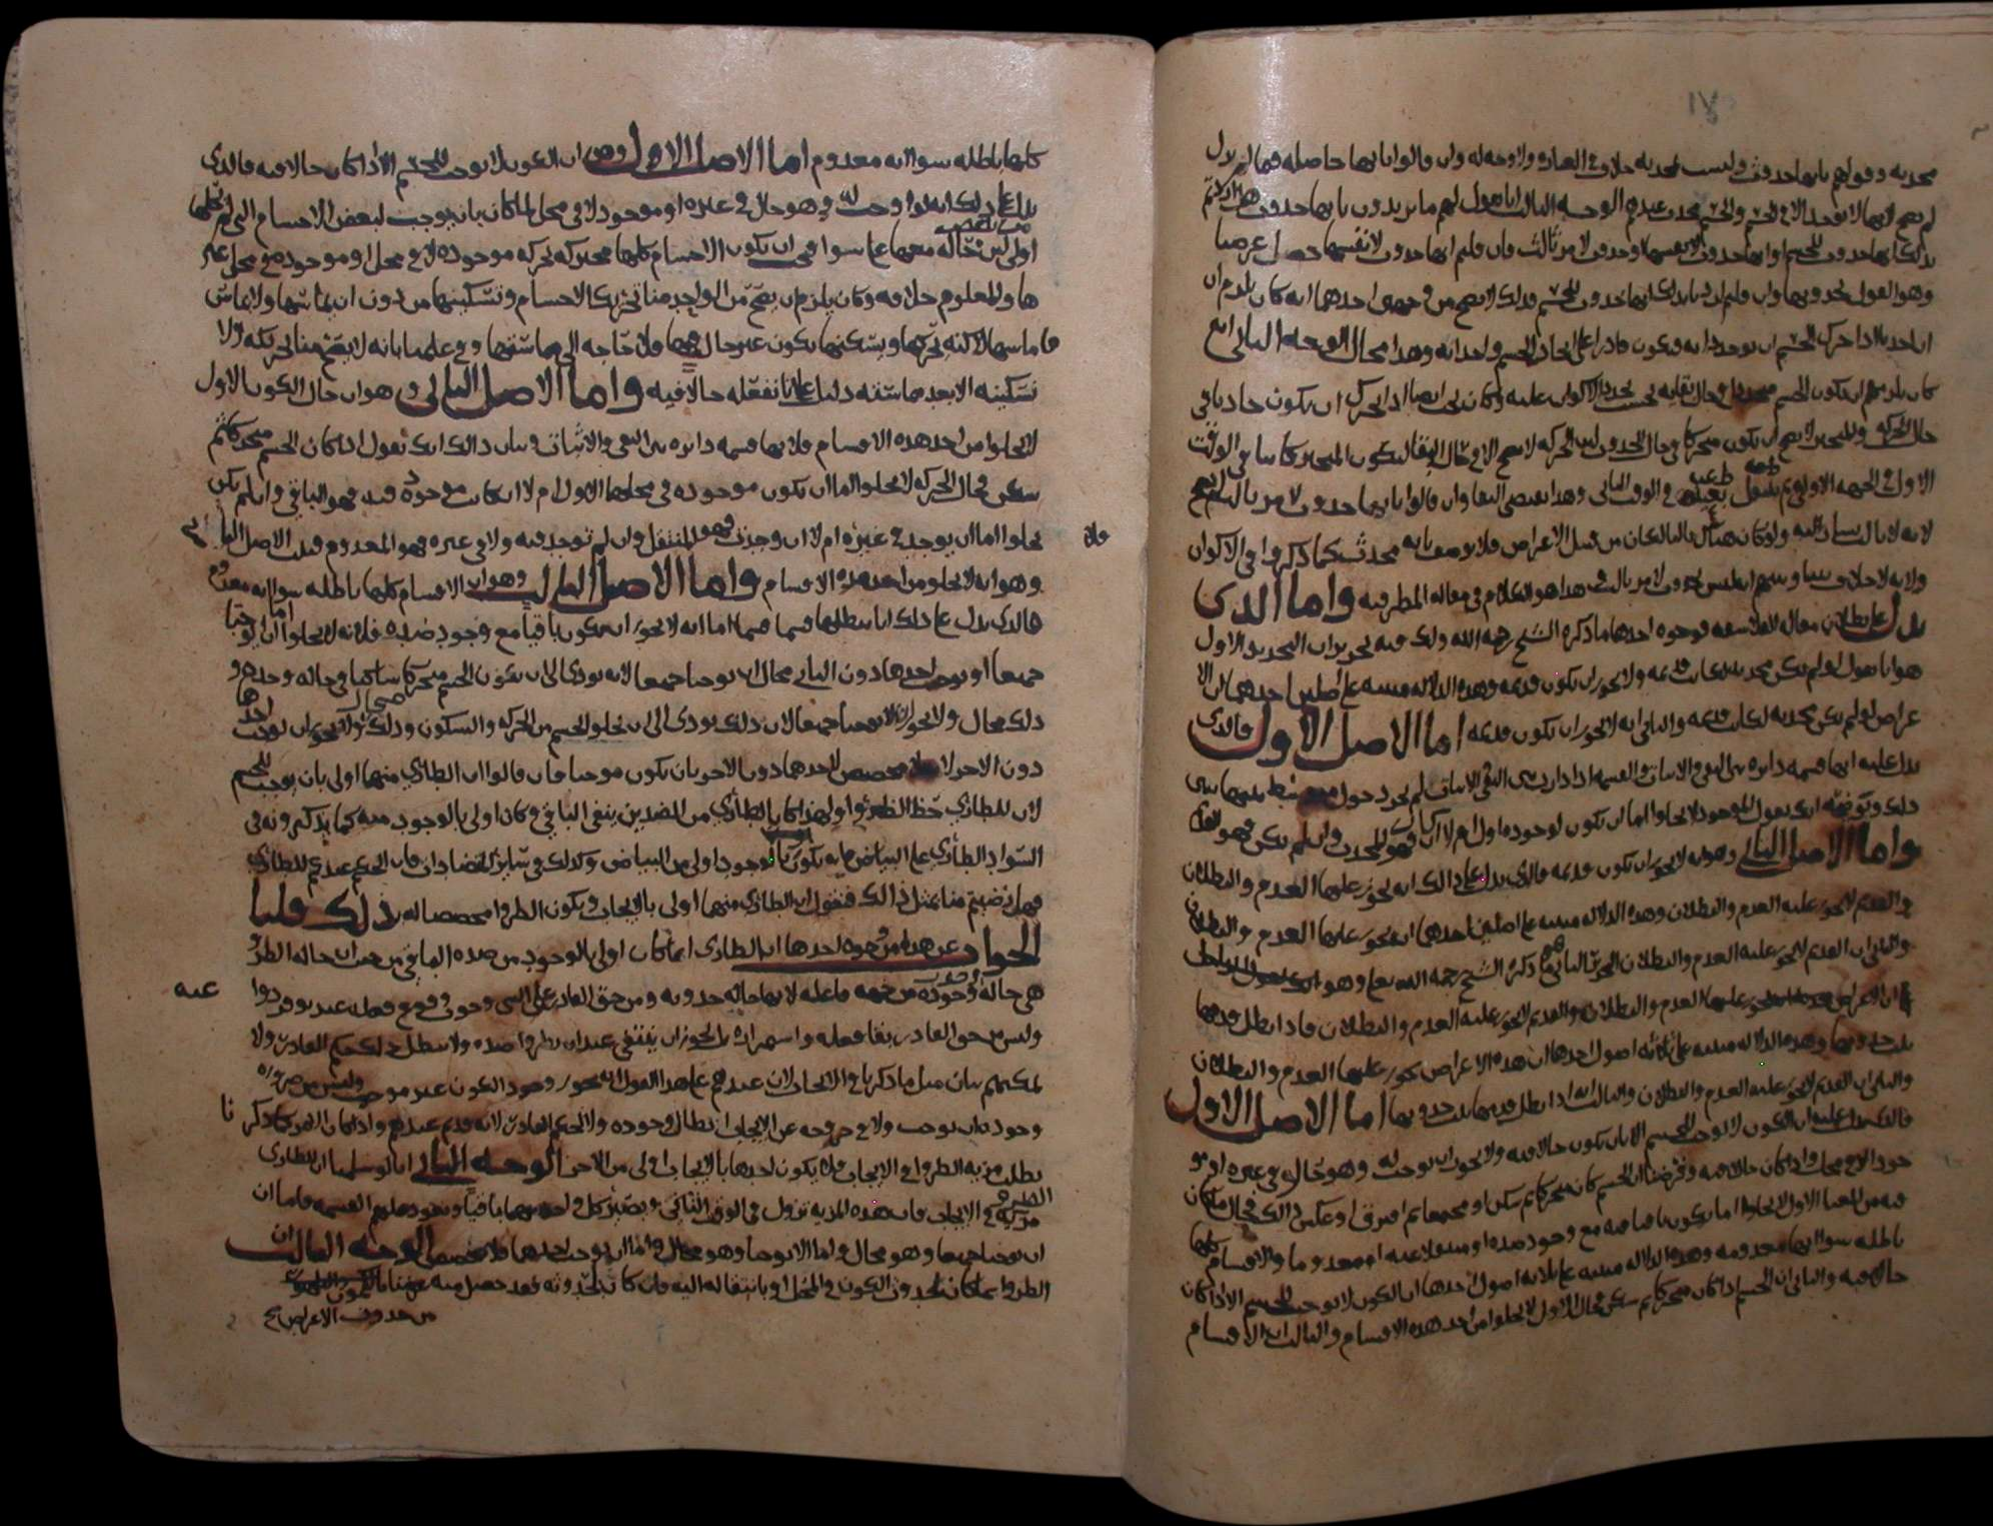 محدثه وقولهم بانها حدوث وليست محدثه خلاف في العباره ولا وجه له وان قالوا بانها حاصله فيما لم يزل
لم يصح لانها لا توجد الا في الجسم والجسم محدث عندهم الوجه الثالث انا نقول لهم ما تريدون بانها حدوث هل اردتم
بذلك انها حدوث للجسم او انها حدوث لانفسها او حدوث لامر ثالث فان قلتم انها حدوث لانفسها حصل غرضنا
وهو القول بحدوثها وان قلتم اردنا بذلك انها حدوث للجسم فذلك لا يصح من وجهين احدهما انه كان يلزم ان
احدنا اذا حرك الجسم ان يوجد ذاته فيكون قادرا على ايجاد الجسم واحداثه وهذا محال الوجه الثاني انه
كان يلزمهم ان يكون الجسم في حال بقائه يحسب تجدد الاكوان عليه وكان يجب ايضا اذا تحرك ان يكون حادثا في
حال الحركه والمتحيز لا يصح ان يكون متحركا في حال الحدوث لان الحركه لا تصح الا في حال البقا ليكون المتحيز كائنا في الوقت
الاول في الجهه الاولى ثم ينتقل في الوقت الثاني وهذا يقتضي البقا وان قالوا بانها حدوث لامر ثالث لم يصح
لانه لا ثالث يشار اليه ولو كان هناك ثالث لكان من قبيل الاعراض فلا يوصف بانه محدث كما ذكروا في الاكوان
ولانه لا خلاف بيننا وبينهم انه ليس بحدوث لامر ثالث فهذا هو الكلام في مقاله المطرفيه واما الذي
يدل على بطلان مقاله الفلاسفه فوجوه احدها ما ذكره الشيخ رحمه الله ولك فيه تحريران التحرير الاول
هو انا نقول لو لم تكن محدثه لكانت قديمه ولا يجوز ان تكون قديمه وهذه الدلاله مبنيه على اصلين احدهما ان الا
عراض لو لم تكن محدثه لكانت قديمه والثاني انه لا يجوز ان تكون قديمه اما الاصل الاول فالذي
يدل عليه انها قسمه دائره بين النفي والاثبات والقسمه اذا دارت بين النفي والاثبات لم يجز دخول متوسط بينهما بين
ذلك ويوضحه انك تقول الموجود لا يخلوا اما ان يكون لوجوده اول ام لا ان كان فهو المحدث وان لم يكن فهو القديم
واما الاصل الثاني وهو انه لا يجوز ان تكون قديمه فالذي يدل على ذالك انه يجوز عليها العدم والبطلان
والقديم لا يجوز عليه العدم والبطلان وهذه الدلاله مبنيه على اصلين احدهما انه يجوز عليها العدم والبطلان
والثاني ان القديم لا يجوز عليه العدم والبطلان التحرير الثاني هو ما ذكره الشيخ رحمه الله تعالى وهو
ان الاعراض يجوز عليها العدم والبطلان والقديم لا يجوز عليه العدم والبطلان فاذا بطل قدمها
ثبت حدوثها وهذه الدلاله مبنيه على ثلاثه اصول احدها ان هذه الاعراض يجوز عليها العدم والبطلان
والثاني ان القديم لا يجوز عليه العدم والبطلان والثالث انه اذا بطل قدمها ثبت حدوثها اما الاصل الاول
فالذي يدل عليه ان الكون لا يوجب للجسم الا بان يكون حالا فيه ولا يجوز ان يوجب له وهو حال في غيره او مو
جود لا في محل واذا كان حالا فيه وفرضنا ان الجسم كان متحركا ثم سكن او مجتمعا ثم افترق او عكس ذالك فحال ما كان
فيه من المعنا الاول لا يخلوا اما ان يكون باقيا فيه مع وجود ضده او منتقلا عنه او معدوما والاقسام كلها
باطله سوا انها معدومه وهذه الدلاله مبنيه على ثلاثه اصول احدها ان الكون لا يوجب للجسم الا اذا كان
حالا فيه والثاني ان الجسم اذا كان متحركا ثم سكن فحال الاول لا يخلوا من احد هذه الاقسام والثالث ان الاقسام
كلها باطله سوا انه معدوم اما الاصل الاول وهو ان الكون لا يوجب للجسم الا اذا كان حالا فيه فالذي
يدل على ذلك انه لو اوجب له وهو حال في غيره او موجود لا في محل لما كان بان يوجب لبعض الاجسام التي لم يحلها
اولى من بعض لان حاله معها على سوا فيجب ان تكون الاجسام كلها متحركه بحركه موجوده لا في محل او موجوده في محل غير
ها والمعلوم خلافه وكان يلزم ان يصح من الواحد منا تحريك الاجسام وتسكينها من دون ان يماسها ولا يماس
ما ماسها لانه تحركها وتسكنها بكون غير حال فيها فلا حاجه الى مماستها وفي علمنا بانه لا يصح منا تحريكه ولا
تسكينه الا بعد مماسته دليل على انا نفعله حالا فيه واما الاصل الثاني وهو ان حال الكون الاول
لا يخلوا من احد هذه الاقسام فلانها قسمه دائره بين النفي والاثبات وبيان ذالك انك تقول اذا كان الجسم متحركا ثم
سكن فحال الحركه لا يخلوا اما ان تكون موجوده في محلها الاول ام لا ان كانت موجوده فيه فهو الباقي وان لم تكن
يخلوا اما ان توجد في غيره ام لا ان وجدت فهو المنتقل وان لم توجد فيه ولا في غيره فهو المعدوم فثبت الاصل الثا
فلا
ني
وهو انه لا يخلو من احد هذه الاقسام واما الاصل الثالث وهو ان الاقسام كلها باطله سوا انه معدوم
فالذي يدل على ذلك انا نبطلها قسما قسما اما انه لا يجوز ان يكون باقيا مع وجود ضده فلانه لا يخلوا اما ان يوجبا
جميعا او يوجب احدهما دون الثاني محال ان يوجبا جميعا لانه يودي الى ان يكون الجسم متحركا ساكنا في حاله واحده و
ذلك محال ولا يجوز ان لا يوجبا جميعا لان ذلك يودي الى ان يخلو الجسم من الحركه والسكون وذلك محال ولا يجوز ان يوجب احدهما
دون الاخر لانه لا مخصص لاحدهما دون الاخر بان يكون موجبا فان قالوا ان الطاري منهما اولى بان يوجب للجسم
لان للطاري حظ الطرو ولهذا كان الطاري من الضدين ينفي الباقي وكان اولى بالوجود منه كما يذكرونه في
السواد الطاري على البياض فانه يكون اولى بالوجود من البياض وكذلك في سائر المتضادات فان الحكم عندكم للطاري
فهل رضيتم منا بمثل ذالك فنقول ان الطاري منهما اولى بالايجاب ويكون الطرو مخصصا له بذلك قلنا
الجواب عن هذا من وجوه احدها ان الطاري انما كان اولى بالوجود من ضده الباقي من حيث ان حاله الطرو
هي حاله وجوده من جهه فاعله لانها حاله حدوثه ومن حق القادر على الشي وجوب وقوع فعله عند توفر دوا
عيه
وليس من حق القادر بقا فعله واستمراره بل يجوز ان ينتفي عند ان يطرو ضده ولا يبطل ذلك حكم القادر ولا
يمكنهم بيان مثل ما ذكرنا في الايجاب لان عندهم على هذا القول انه يجوز وجود الكون غير موجب وليس من ضروره
وجوده ان يوجب ولا في خروجه عن الايجاب ابطال وجوده ولا لحكم القادر لانه قديم عندهم واذا كان الامر كما ذكر
نا
بطلت مزيه الطرو في الايجاب فلا يكون احدها بالايجاب اولى من الاخر الوجه الثاني انا لو سلمنا ان للطاري
مزيه الطرو في الايجاب فان هذه المزيه تزول في الوقت الثاني ويصير كل واحد منهما باقيا وتعود عليهم القسمه فاما ان
يوجبا جميعا وهو محال واما الا يوجبا وهو محال واما ان يوجب احدهما فلا مخصص الوجه الثالث ان
الطرو اما كان بحدوث الكون في المحل او بانتقاله اليه فان كان بحدوثه فقد حصل منه غرضنا
من حدوث الاعراض